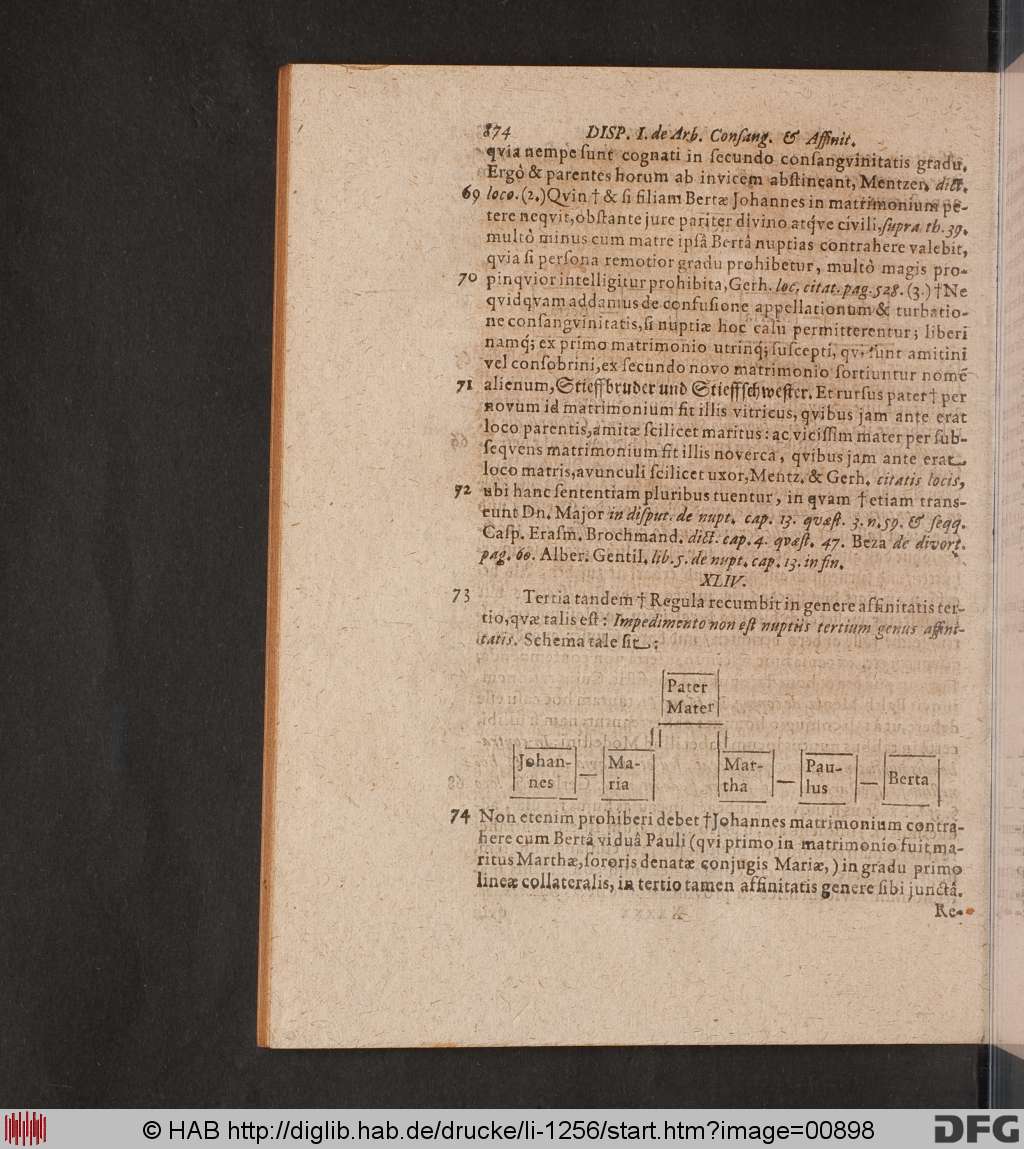 874 DISP. I. de Arb. Consang. & Affinit.
qvia nempe sunt cognati in secundo consangvinitatis gradu.
Ergò & parentes horum ab invicem abstineant, Mentzer. dict.
69 loco. (2.) Qvin † & si filiam Bertæ Johannes in matrimonium pe-
tere neqvit, obstante jure pariter divino atq́ve civili, supra th. 39.
multò minus cum matre ipsâ Bertâ nuptias contrahere valebit,
qvia si persona remotior gradu prohibetur, multò magis pro-
70 pinqvior intelligitur prohibita, Gerh. loc. citat. pag. 528. (3.) † Ne
qvidqvam addamus de confusione appellationum & turbatio-
ne consangvinitatis, si nuptiæ hoc casu permitterentur; liberi
namq́; ex primo matrimonio utrinq́; suscepti, qvi sunt amitini
vel consobrini, ex secundo novo matrimonio sortiuntur nomẽ
71 alienum, Stieffbruder und Stieffschwester. Et rursus pater † per
novum id matrimonium fit illis vitricus, qvibus jam ante erat
loco parentis, amitæ scilicet maritus: ac vicissim mater per sub-
seqvens matrimonium fit illis noverca, qvibus jam ante erat
loco matris, avunculi scilicet uxor, Mentz. & Gerh. citatis locis,
72 ubi hanc sententiam pluribus tuentur, in qvam † etiam trans-
eunt Dn. Major in disput. de nupt. cap. 13. qvæst. 3. n. 59. & seqq.
Casp. Erasm. Brochmand. dict. cap. 4. qvæst. 47. Beza de divort.
pag. 60. Alber. Gentil. lib. 5. de nupt. cap. 13. in fin.
XLIV.
73 Tertia tandem † Regula recumbit in genere affinitatis ter-
tio, qvæ talis est: Impedimento non est nuptiis tertium genus affini-
tatis. Schema tale sit:
Pater
Mater
Johan- — Ma- Mar- — Pau- — Berta
nes ria tha lus
74 Non etenim prohiberi debet † Johannes matrimonium contra-
here cum Bertâ viduâ Pauli (qvi primo in matrimonio fuit ma-
ritus Marthæ, sororis denatæ conjugis Mariæ,) in gradu primo
lineæ collateralis, in tertio tamen affinitatis genere sibi junctâ.
Re-
© HAB http://diglib.hab.de/drucke/li-1256/start.htm?image=00898
DFG